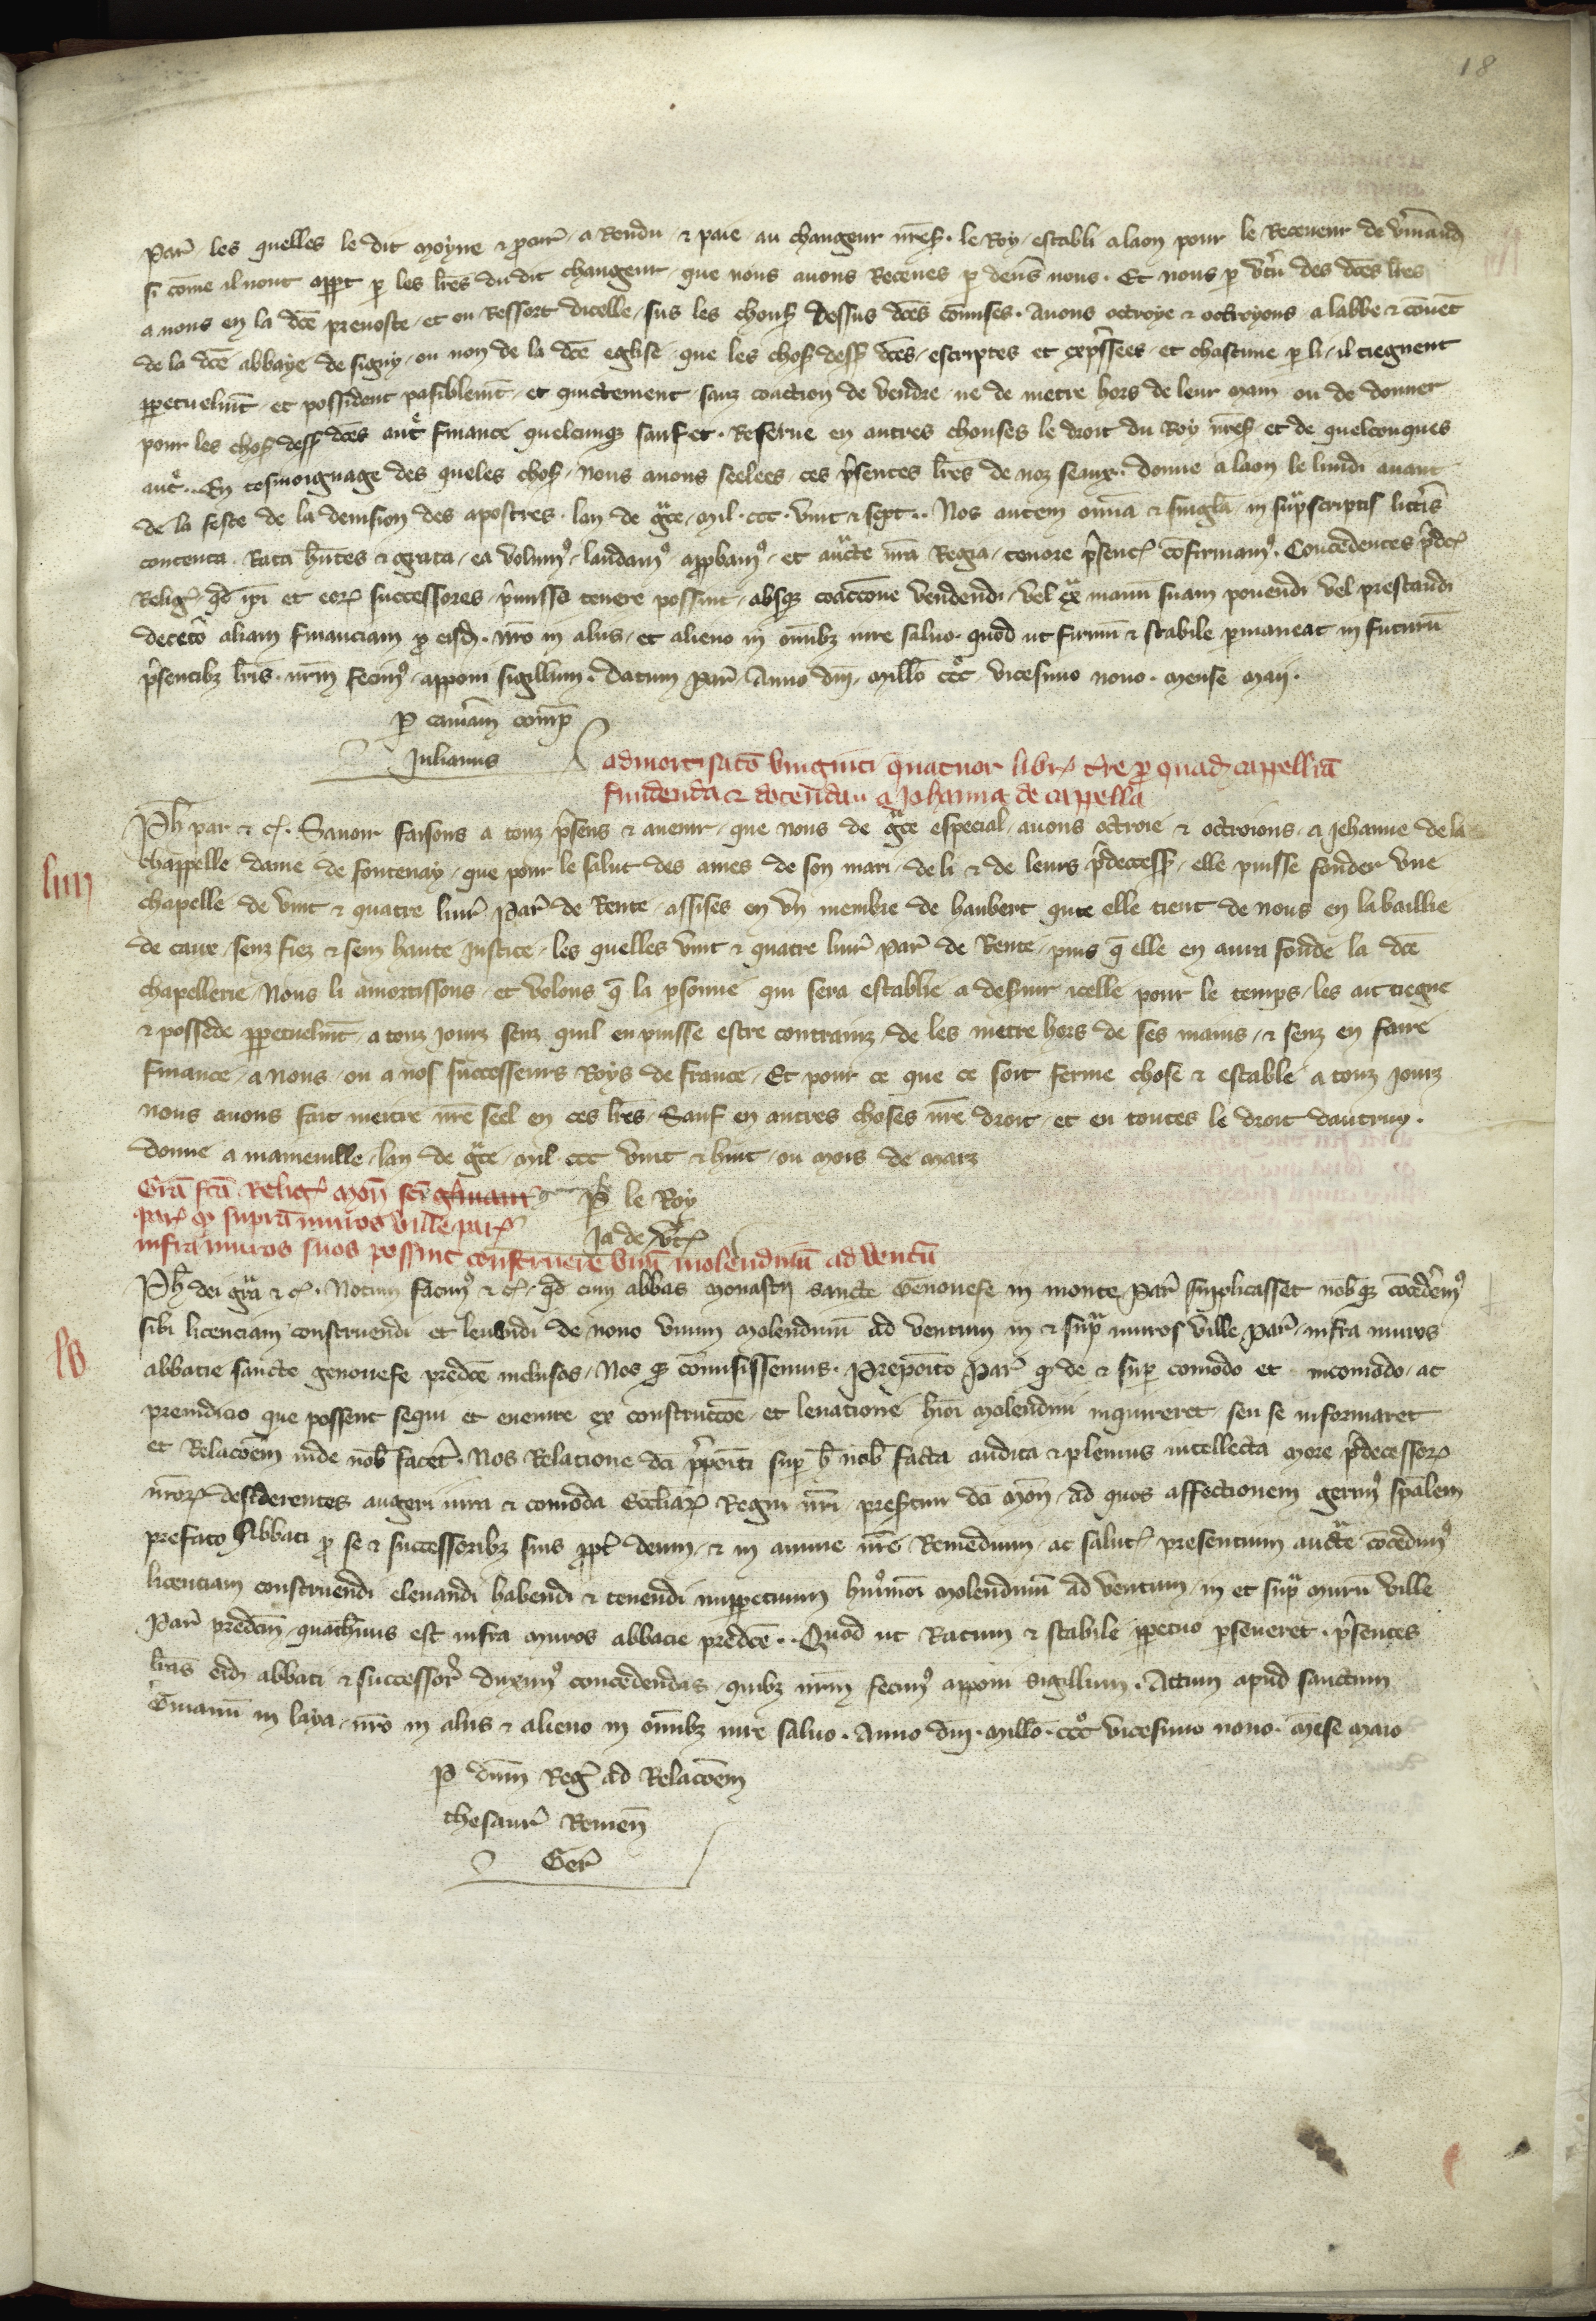 18
Par̃ les quelles le dit moyne & ꝓcur̃ a Rendu & paie au changeur nr̃eſ. le Roy establi a laon pour le Receueur de v̾mand̃
si cõme il nout appt ꝑ les lr̃es du dit changeur que nous auons Receues ꝑ deu̾s nous. Et nous ꝑ v̾tu des dc̃es lr̃es
a nous en la dc̃e preuoste et ou Ressort dicelle sus les chouſ dessus dc̃es cõmises. Auons octroye & octroyons a labbe & cõuẽt
de la dc̃e abbaye de signy ou non de la dc̃e eglise que les choſ dessſ dc̃es escriptes et exp̃ssees et chascune ꝑ li il tiegnent
ꝑpetuelmt̃ et possident paisiblemt̃ et quictement sanz coaction de vendre ne de metre hors de leur main ou de donner
pour les choſ dessſ dc̃es aut̃e finance quelcunqꝫ sauf et Reserue en autres chouses le droit du Roy nr̃eſ et de quelconques
aut̃e. En tesmoignage des queles choſ nous auons seelees ces p̃sentes lr̃es de noz seaux. donne a laon le lundi auant
de la feste de la deuision des apostres lan de gr̃ce mil. ccc. vint & sept. Nos autem om̃ia & singl̃a in sup̃scriptis litt̃is
contenta Rata hñtes & grata ea volumꝰ laudamꝰ appbamꝰ et auct̃e nr̃a Regia tenore p̃senc̃ cõfirmamꝰ. Concedentes p̃dc̃
Relig̃ qd̃ ip̃i et eorꝝ successores p̃missa tenere possint absqꝫ coaccione vendendi vel ex̃ manũ suam ponendi vel prestandi
deceto̾ aliam financiam ꝓ eisd̃. nr̃o in aliis et alieno in om̃ibꝫ iure saluo. quod ut firmũ & stabile ꝑmaneat in futurũ
p̃sentibꝫ lr̃is nr̃m fecimꝰ apponi sigillum. datum Par̃ Anno dñi mill̃o cccͦ vicesimo nono. mense maij.
ꝑ cam̃am comp̃
Iulianus
admortisatõ vinginti quatuor libr̃ t̾re ꝓ quad̃ cappellã
fundenda & dotendau a Iohanna de cappella
Ph̃ par & c̃. Sauoir faisons a touz p̃sens & auenir que nous de gr̃ce especial auons octroie & octroions a Jehanne de la
chappelle dame de fontenay que pour le salut des ames de son mari de li & de leurs p̃decessſ elle puisse fonder vne
liiii
chapelle de vint & quatre liur̃ Par̃ de Rente assises en vn membre de haubert qute elle tient de nous en la baillie
de caux senz fiez & senz haute Justice les quelles vint & quatre liur̃ par̃ de Rente puis q̃ elle en aura fonde la dc̃e
chapellerie Nous li amortissons et volons q̃ la ꝑsonne qui sera establie a desseruir icelle pour le temps les ait tiegne
& possede ꝑpetuelmt̃ a touz jourz senz quil en puisse estre contrainz de les metre hors de ses mains & senz en faire
finance a nous ou a nos successeurs Roys de france Et pour ce que ce soit ferme chose & estable a touz jourz
nous auons fait mettre nr̃e seel en ces lr̃es Sauf en autres choses nr̃e droit et en toutes le droit dautruy.
donne a maineuille lan de gr̃ce mil ccc vint & huit ou mois de marz
ꝑ le Roy
Ja de v̾t̃
Gr̃a fc̃a Relig̃ moñ sc̃e genouef̃
par̃ qꝫ supra muros ville par̃
infra muros suos possint construere vnũ molendinũ ad ventũ
Ph̃ dei gr̃a & c̃. Notum facimꝰ & c̃. qd̃ cum abbas monast̾ii sancte Genouefe in monte Par̃ supplicasset nob̃ qꝫ cõcederemꝰ
sibi licenciam construendi et leuandi de nouo vnum molendinũ ad ventum in & sup̃ muros ville Par̃ infra muros
lv
abbacie sancte genouefe predc̃e inclusos Nos qꝫ cõmisissemus. Preposito Par̃ qꝫ de & suꝑ comodo et incomodo ac
preiudicio que possent sequi et euenire ex construccõe et leuatione hm̃oi molendini inquireret seu se informaret
et Relacõem inde nob̃ facer̃t. Nos Relatione dc̃i p̃poiti suꝑ h̃ nob̃ facta audita & plenius intellecta more p̃decessorꝝ
nr̃orꝝ desiderentes augeri iura & comoda Eccl̃iarꝝ Regni nr̃i presertim dc̃i Moñ ad quos affectionem gerimꝰ sp̃alem
prefato Abbati ꝓ se & successoribꝫ suis ꝓpt̾ deum & in anime nr̃e Remedium ac salut̃ presentium auct̃e cõcedimꝰ
licenciam construendi eleuandi habendi & tenendi inꝑpetuum huiꝰmõi molendinũ ad ventum in et sup̃ murũ ville
Par̃ predc̃m quatinus est infra muros abbacie predc̃e. Quod ut Ratum & stabile ꝑpetuo ꝑseueret. p̃sentes
lr̃as eid̃ abbati & successor̃ duximꝰ concedendas quibꝫ nr̃m fecimꝰ apponi sigillum. Actum apud sanctum
G̾manũ in laya nr̃o in aliis & alieno in om̃ibꝫ iure saluo. Anno dñi. mill̃o. cccͦ vicesimo nono. mẽse maio
ꝑ dñm Reg̃ ad Relacõem
thesaur̃ Remeñ
Ger̃